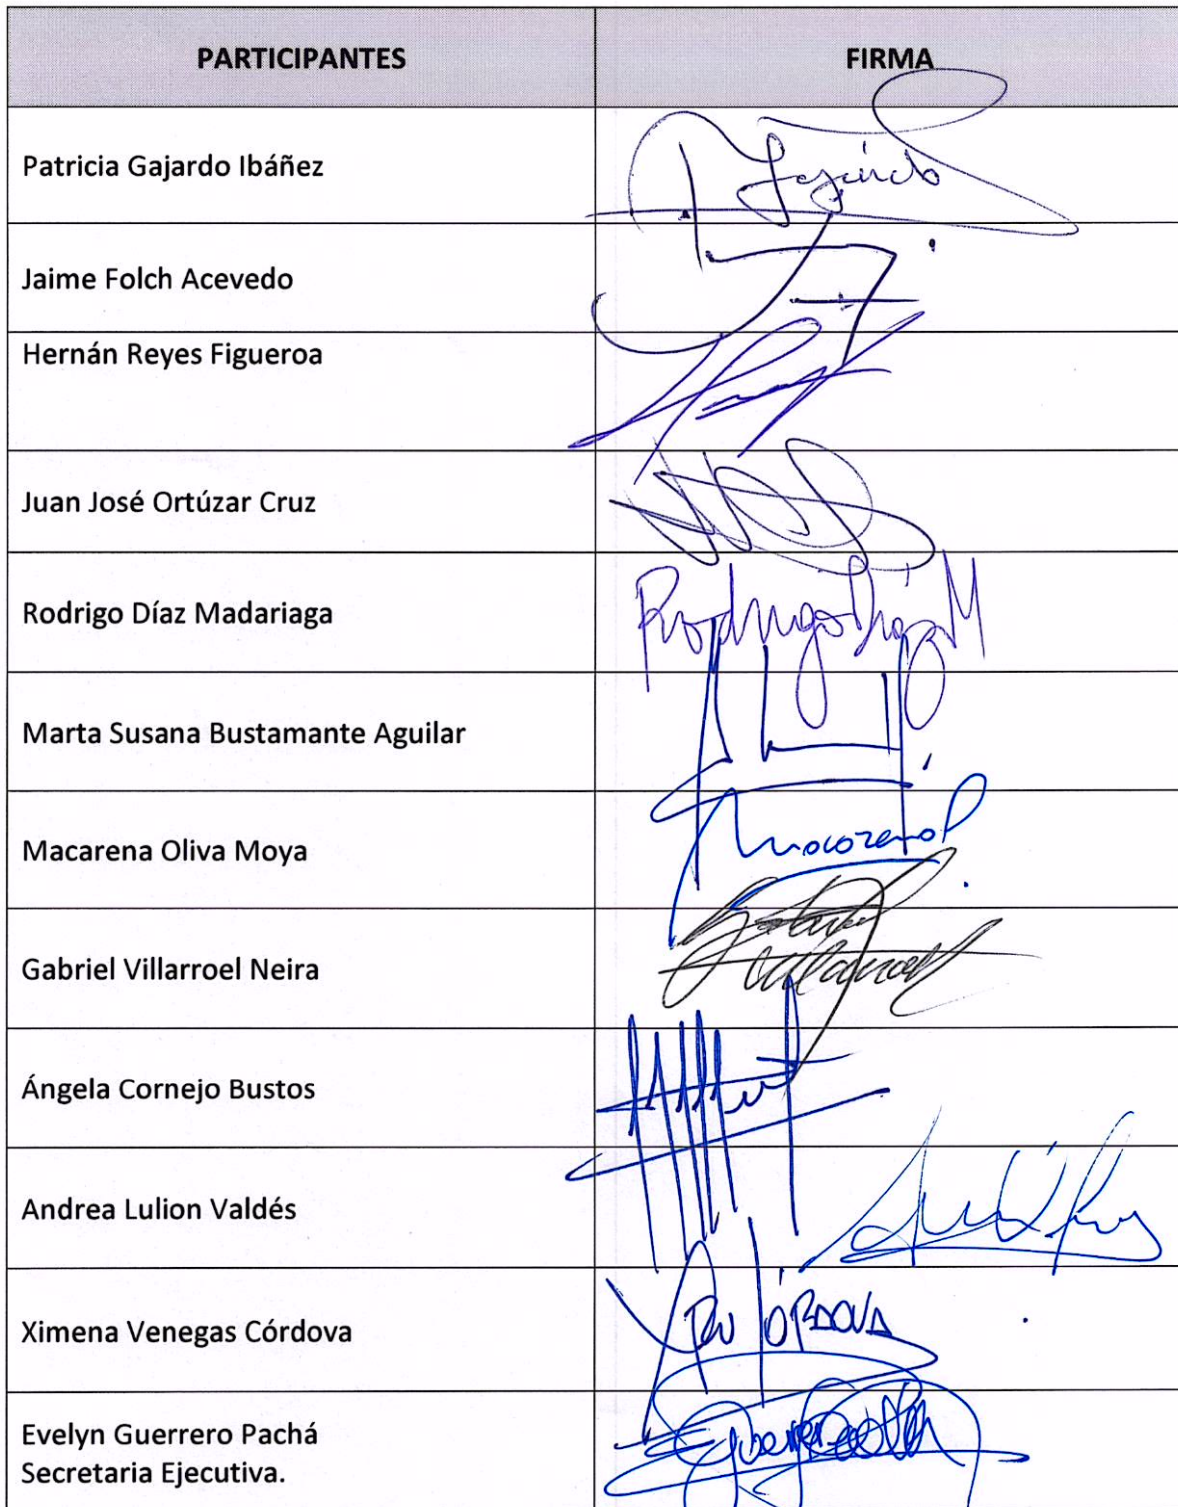 PARTICIPANTES FIRMA
Patricia Gajardo Ibáñez
Jaime Folch Acevedo
Hernán Reyes Figueroa
Juan José Ortúzar Cruz
Rodrigo Díaz Madariaga Rodrigo Díaz M
Marta Susana Bustamante Aguilar
Macarena Oliva Moya
Gabriel Villarroel Neira
Ángela Cornejo Bustos
Andrea Lulion Valdés
Ximena Venegas Córdova
Evelyn Guerrero Pachá
Secretaria Ejecutiva.